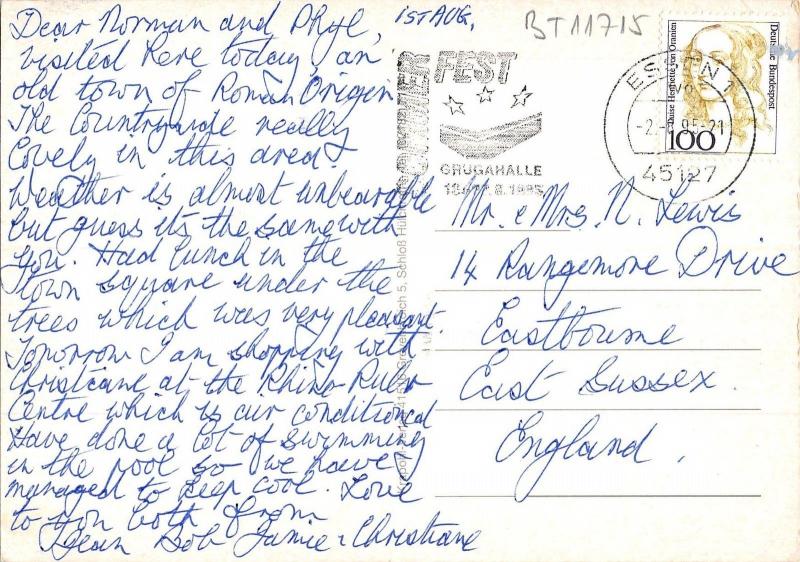 Dear Norman and Phyl,
visited here today, an
old town of Roman Origin
The Countryside really
lovely in this area!
Weather is almost unbearable
but guess its the same with
you. Had lunch in the
town square under the
trees which was very pleasant.
Tomorrow I am shopping with
Christiane at the Rhino-Ruhr
Centre which is air conditioned
Have done a lot of swimming
in the pool so we have
managed to keep cool. Love
to you both from
Jean Bob Jamie & Christiane
1ST AUG,
BT11715
FEST
GRUGAHALLE
ESSEN 1
45127
Luise Henriette von Oranien
Deutsche Bundespost
100
Mr. & Mrs. N. Lewis
14 Rangemore Drive
Eastbourne
East Sussex.
England.